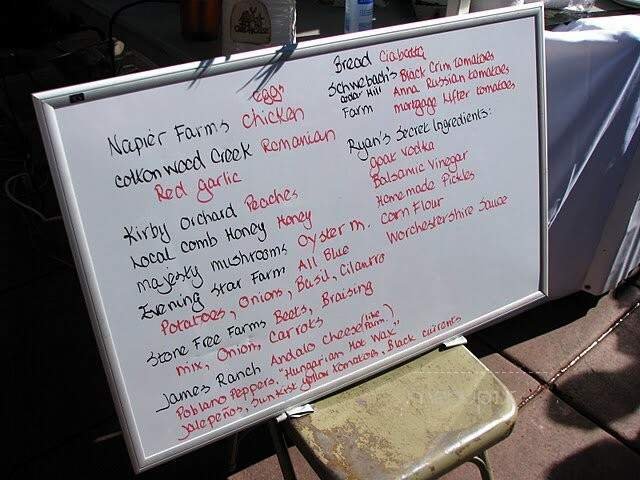 eggs
Napier Farms chicken
cottonwood Creek Romanian
Red garlic
Kirby Orchard Peaches
Local comb Honey Honey
majesty mushrooms Oyster m.
Evening Star Farm All Blue
Potatoes, Onions, Basil, Cilantro
Stone Free Farms Beets, Braising
mix, Onion, Carrots
James Ranch Andalo cheese (like Parm.)
Poblano Peppers, "Hungarian Hot Wax",
Jalepeños, Sunkist yellow tomatoes, Black currents
Bread Ciabatta
Schwebach's Black Crim tomatoes
Cedar Hill Anna Russian tomatoes
Farm mortgage Lifter tomatoes
Ryan's Secret Ingredients:
goat vodka
Balsamic Vinegar
Homemade Pickles
Corn Flour
Worchestershire Sauce